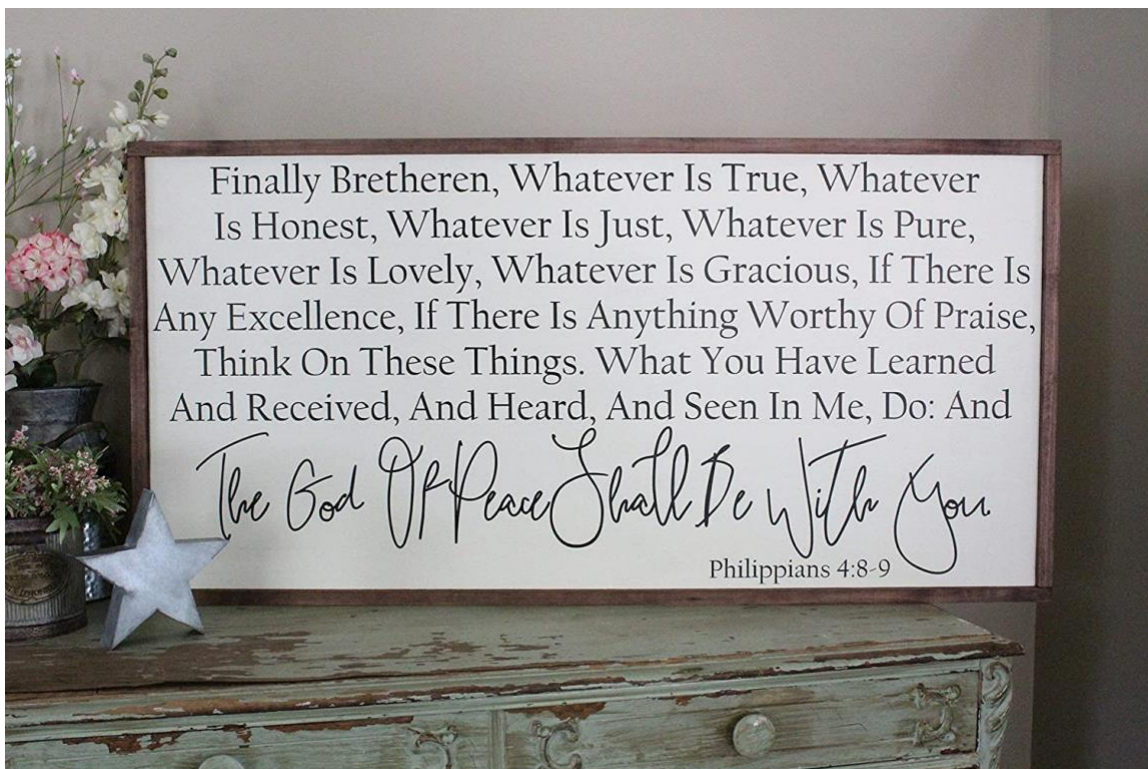 Finally Bretheren, Whatever Is True, Whatever
Is Honest, Whatever Is Just, Whatever Is Pure,
Whatever Is Lovely, Whatever Is Gracious, If There Is
Any Excellence, If There Is Anything Worthy Of Praise,
Think On These Things. What You Have Learned
And Received, And Heard, And Seen In Me, Do: And
The God Of Peace Shall Be With You.
Philippians 4:8-9